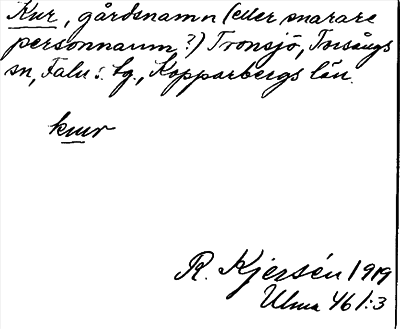 Kur, gårdsnamn (eller snarare
personnamn?) Tronsjö, Torsångs
sn, Falu s. lg., Kopparbergs län.
kuur
R. Kjersén 1919
Ulma 46 1:3